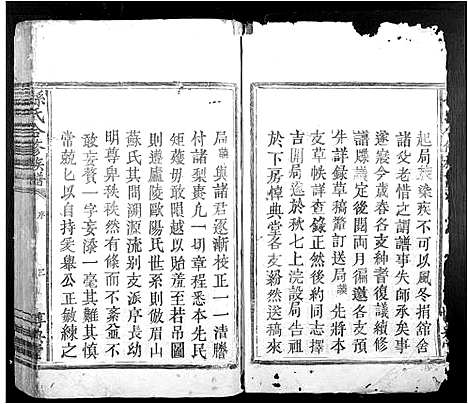 起局族彙疾不可以風冬捐舘舍
諸父老惜之謂譜事失師承矣事
遂寢今歲春各支紳耆復議續修
譜牒議定後閱兩月遍繳各支預
先詳錄草稿簿訂送局議先將本
支草帙詳查錄正然後約同志擇
吉開局迄於秋七上浣設局告祖
於下房惇典堂各支紛然送稿來
局議與諸君逐漸校正一一清謄
付諸梨棗凡一切章程悉本先民
矩矱毋敢隕越以貽羞若吊圖
則遵廬陵歐陽氏世系則倣眉山
蘇氏其間溯源流別支派序長幼
明尊卑秩秩然有條而不紊並不
敢妄贅一字妄漆一毫其難其慎
常兢乜以自持茲舉公正敏練之
孫氏合修族譜
序
三